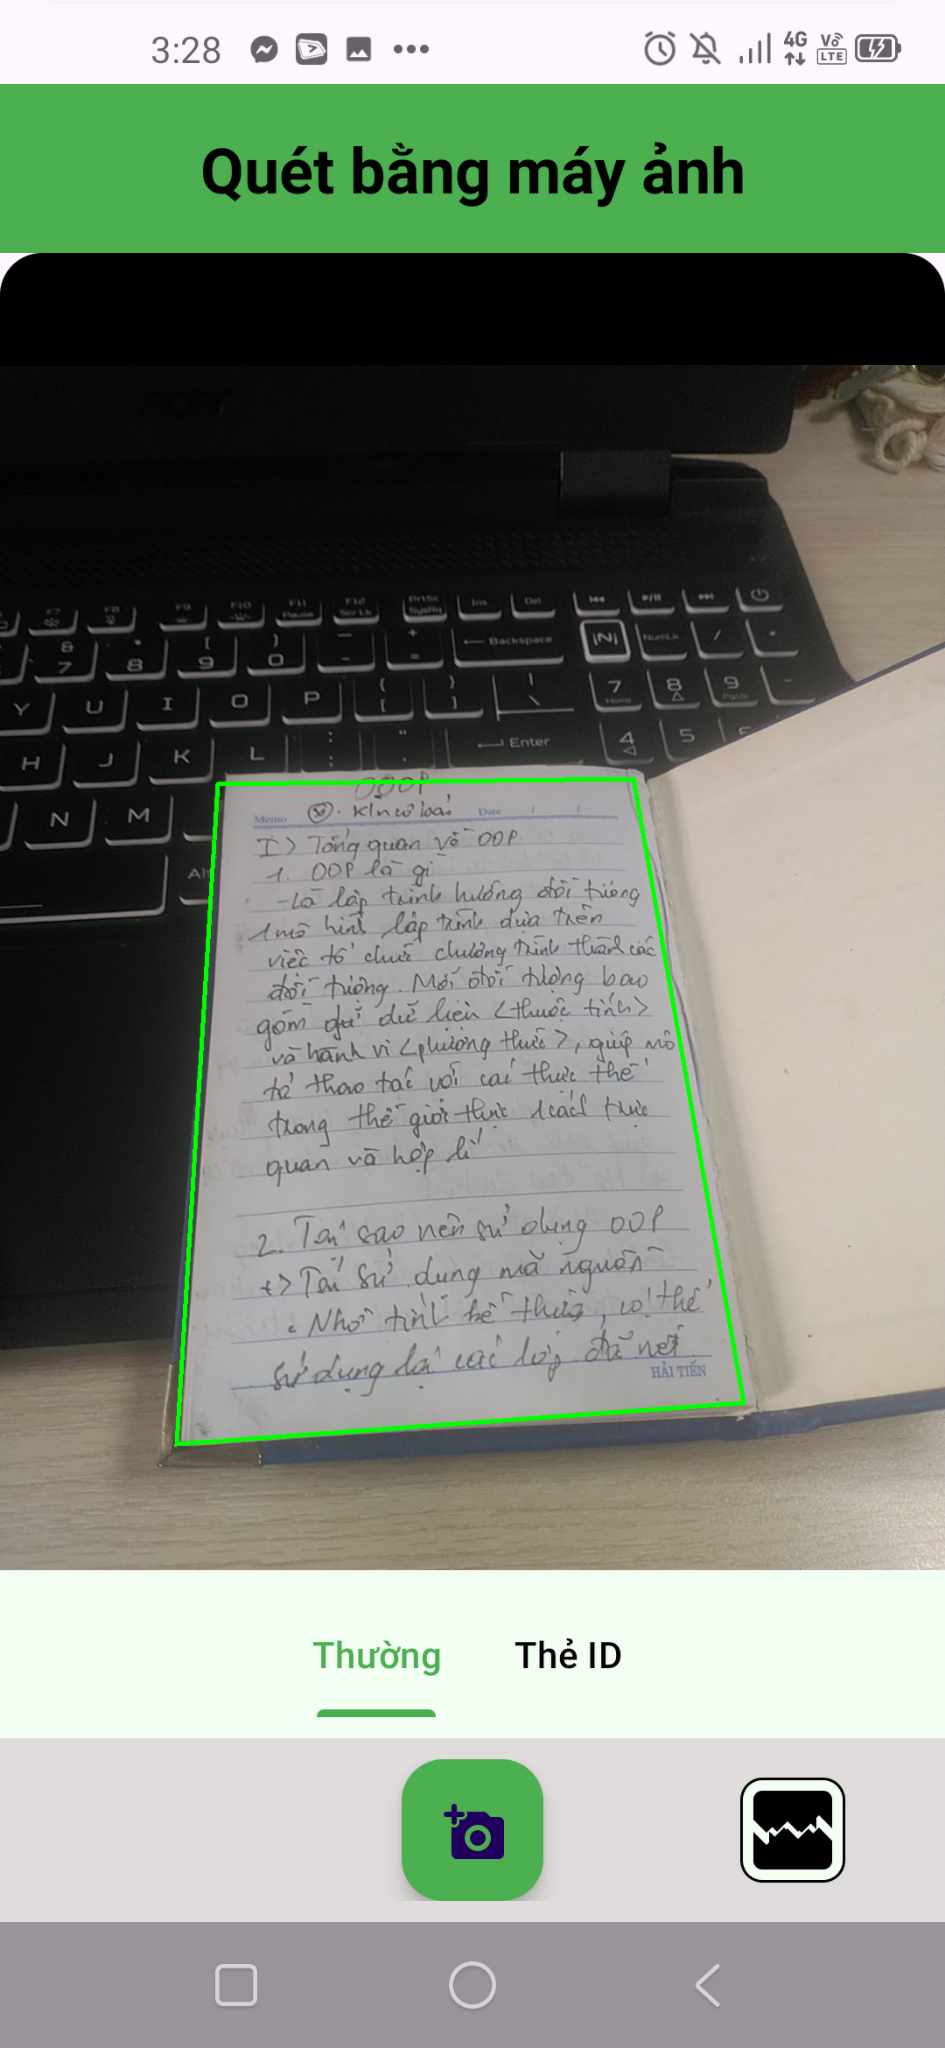 3:28
4G
Vo
LTE
Quét bằng máy ảnh
F7 F8 F9 F10 F11 F12 PrtSc Ins Del
Pause Scr Lk SysRq
& * ( ) _ + Backspace NumLk / *
7 8 9 0 - =
Y U I O P { } | 7 8 9 -
[ ] \ Home PgUp
H J K L : " Enter 4 5
; '
N M
Alt
OOP
Memo Date / /
I) Tổng quan về OOP
1. OOP là gì
- Là lập trình hướng đối tượng
1 mô hình lập trình dựa trên
việc tổ chức chương trình thành các
đối tượng. Mỗi đối tượng bao
gồm dữ liệu <thuộc tính>
và hành vi <phương thức>, giúp mô
tả thao tác với các thực thể
trong thế giới thực 1 cách trực
quan và hợp lí
2. Tại sao nên sử dụng OOP
+> Tái sử dụng mã nguồn
. Nhờ tính kế thừa, có thể
sử dụng lại các lớp đã
HẢI TIẾN
Thường
Thẻ ID